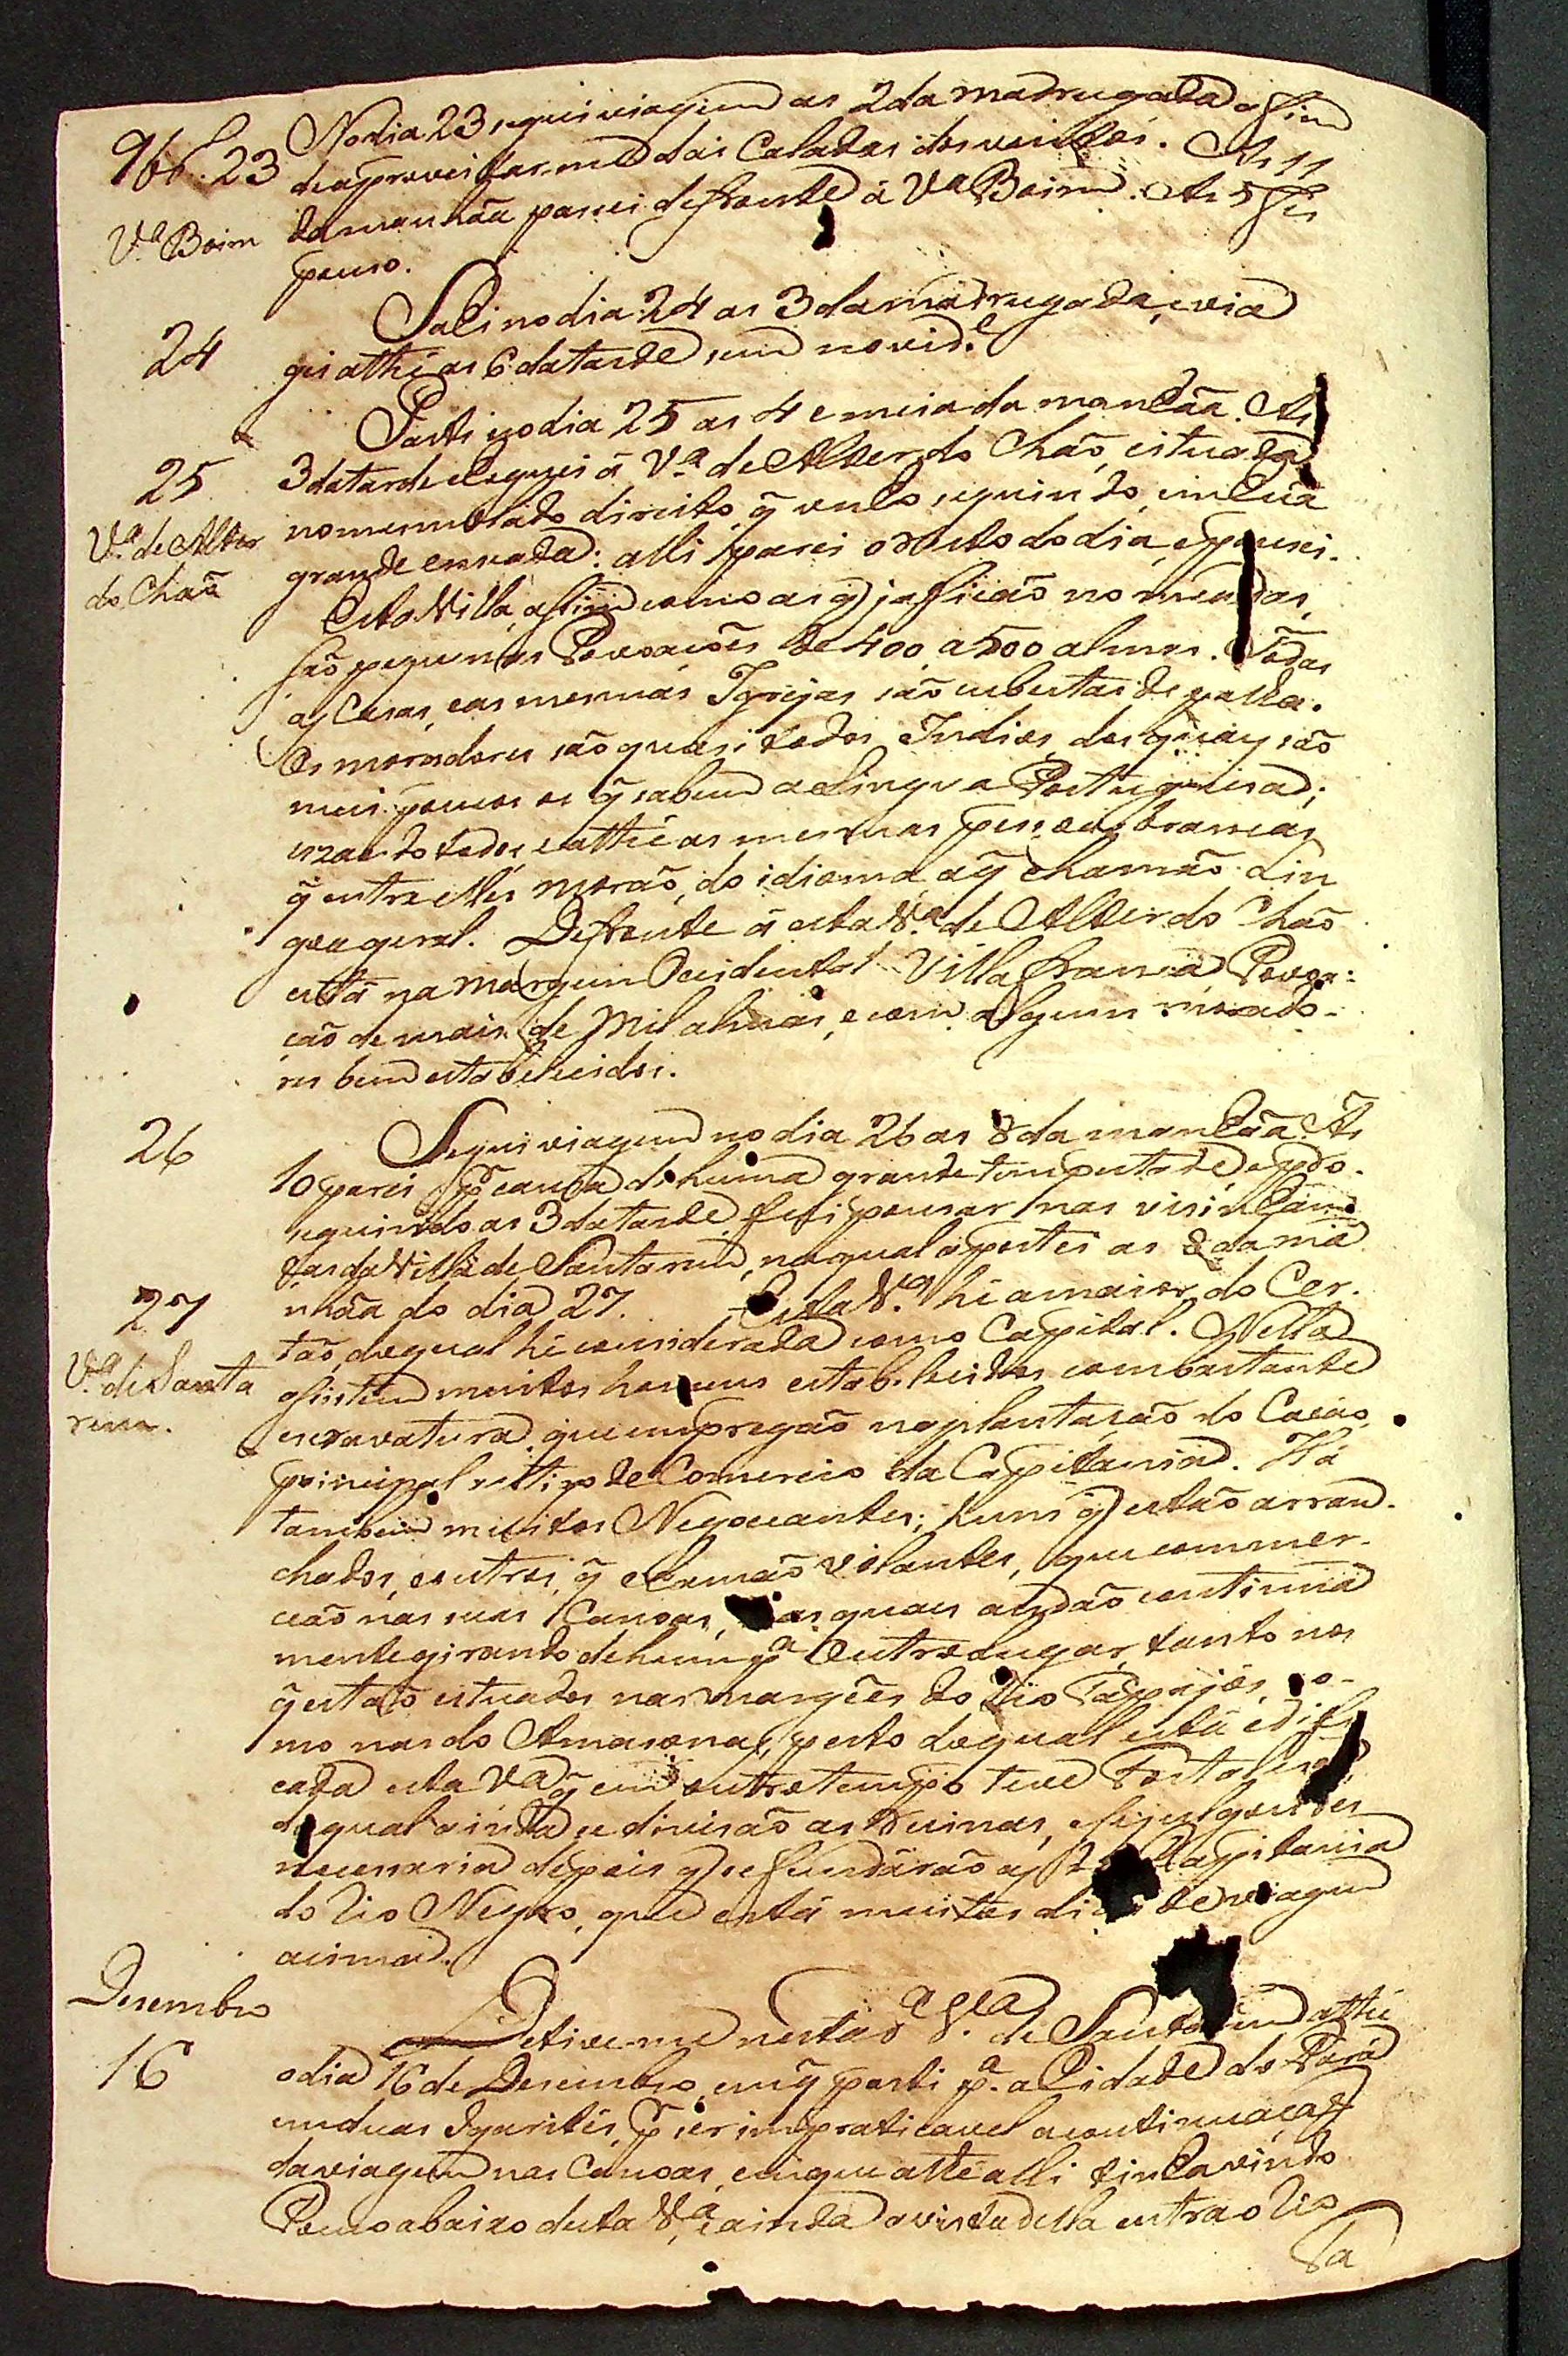 9br.o 23
No dia 23 segui viagem as 2 da madrugada afim
de aproveitar-me das Caladas dos ventos. As 11
da manhãa passei defronte á V.a Boim. As 5 fiz
V.a Boim
pouzo.
24
Sahi no dia 24 as 3 da madrugada, e via
gei athé as 6 da tarde sem novid.e
Parti no dia 25 as 4 e meia da manhãa. As
25
3 da tarde cheguei á V.a de Alter do Chaõ, situada
no mesmo lado direito q̃ venho seguindo, em huã
V.a de Alter
do Chaõ
grande enseada: alli passei o resto do dia, e pousei.
Esta Villa, assim como as q̃ ja ficaõ nomeadas,
saõ pequenas Povoações de 400 a 500 almas. Todas
as Casas, e as mesmas Igrejas saõ cubertas de palha.
Os moradores saõ quasi todos Indios, dos quaes saõ
mui poucos os q̃ sabem a Lingua Portuguesa;
uzando todos, e athé as mesmas pessoas brancas,
q̃ entre elles moraõ, do idioma a q̃ chamaõ Lin
goa geral. Defronte á esta V.a de Alter do Chaõ
está na margem Occidental Villa franca, Povoa-
çaõ de mais de mil almas, e com alguns morado-
res bem estabelecidos.
26
Segui viagem no dia 26 as 8 da manhãa. As
10 parei p.r causa de huma grande tempestade, e pro-
seguindo as 3 da tarde, fui pousar nas visinhan
ças da Villa de Santarem, na qual aportei as 8 da ma
27
nhãa do dia 27. Esta V.a hé a maior do Cer-
taõ, do qual hé considerada como Capital. Nella
V.a de Santa
rem.
assistem muitos homens estabelecidos com bastante
escravatura, que empregaõ na plantaçaõ do Cacáo,
principal artigo de Comercio da Capitania. Há
tambem muitos Negociantes; huns q̃ estaõ arran-
chados, e outros, q̃ chamaõ volantes, que commer-
ceaõ nas suas Canoas, nas quaes andaõ continua
mente girando de hum p.a outro lugar, tanto nos
q̃ estaõ situados nas margẽes do Rio Tapajós, co-
mo nas do Amasonas, perto do qual está edifi
cada esta V.a q̃ em outro tempo teve Fortaleza,
da qual ainda se divisaõ as Ruinas, e se julgou des
necessaria depois q̃ se fundáraõ as da Capitania
do Rio Negro, que está muitos dias de viagem
acima.
Desembro
16
Detive-me nesta V.a de Santarem athé
o dia 16 de Desembro, em q̃ parti p.a a Cidade do Pará
em duas Igarités, p.r ser impraticavel a continuaçaõ
da viagem nas Canoas, em que até alli tinha vindo.
Pouco abaixo desta V.a, e ainda a vista della entra o Rio
Ta